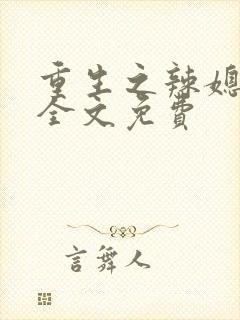 重生之辣媳
全文免费
言舞人